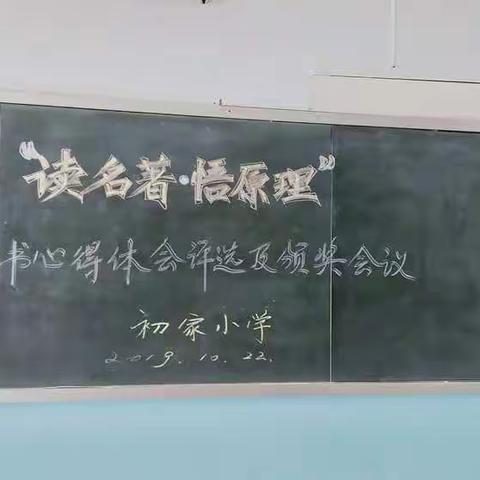 “读名著·悟原理”
书心得体会评选及颁奖会议
初家小学
2019.10.22.